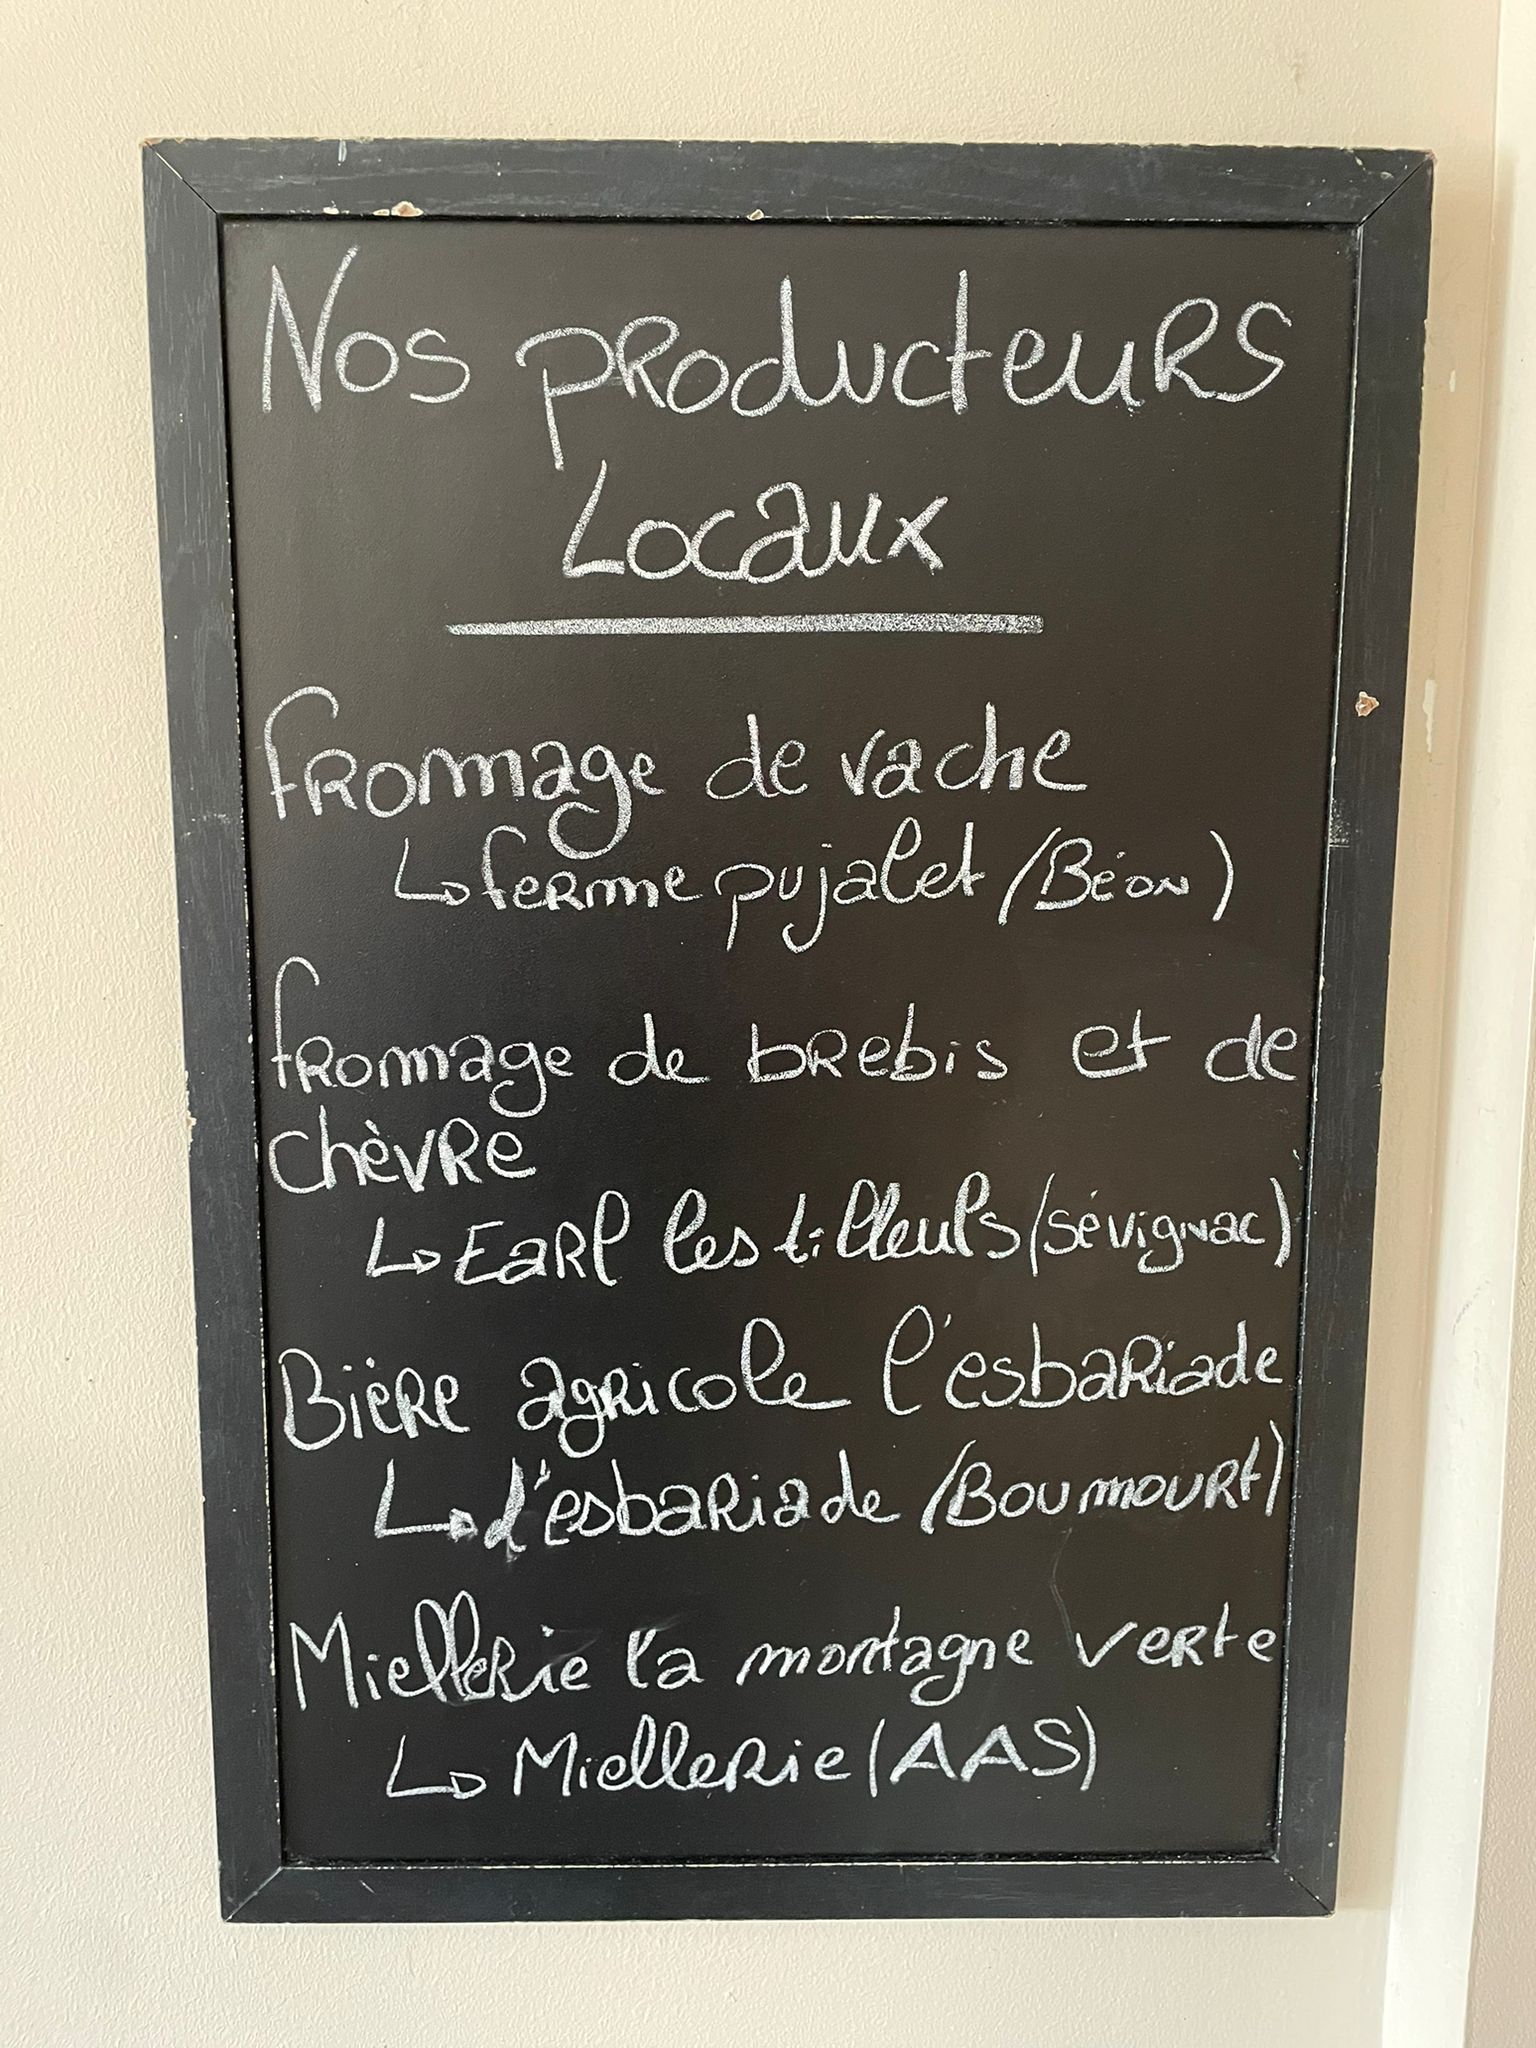 Nos producteurs
Locaux
fromage de vache
↳ ferme pujalet (Béon)
fromage de brebis et de
chèvre
↳ Earl les tilleuls (Sévignac)
Bière agricole l'esbariade
↳ l'esbariade (Boumourt)
Miellerie la montagne verte
↳ Miellerie (AAS)